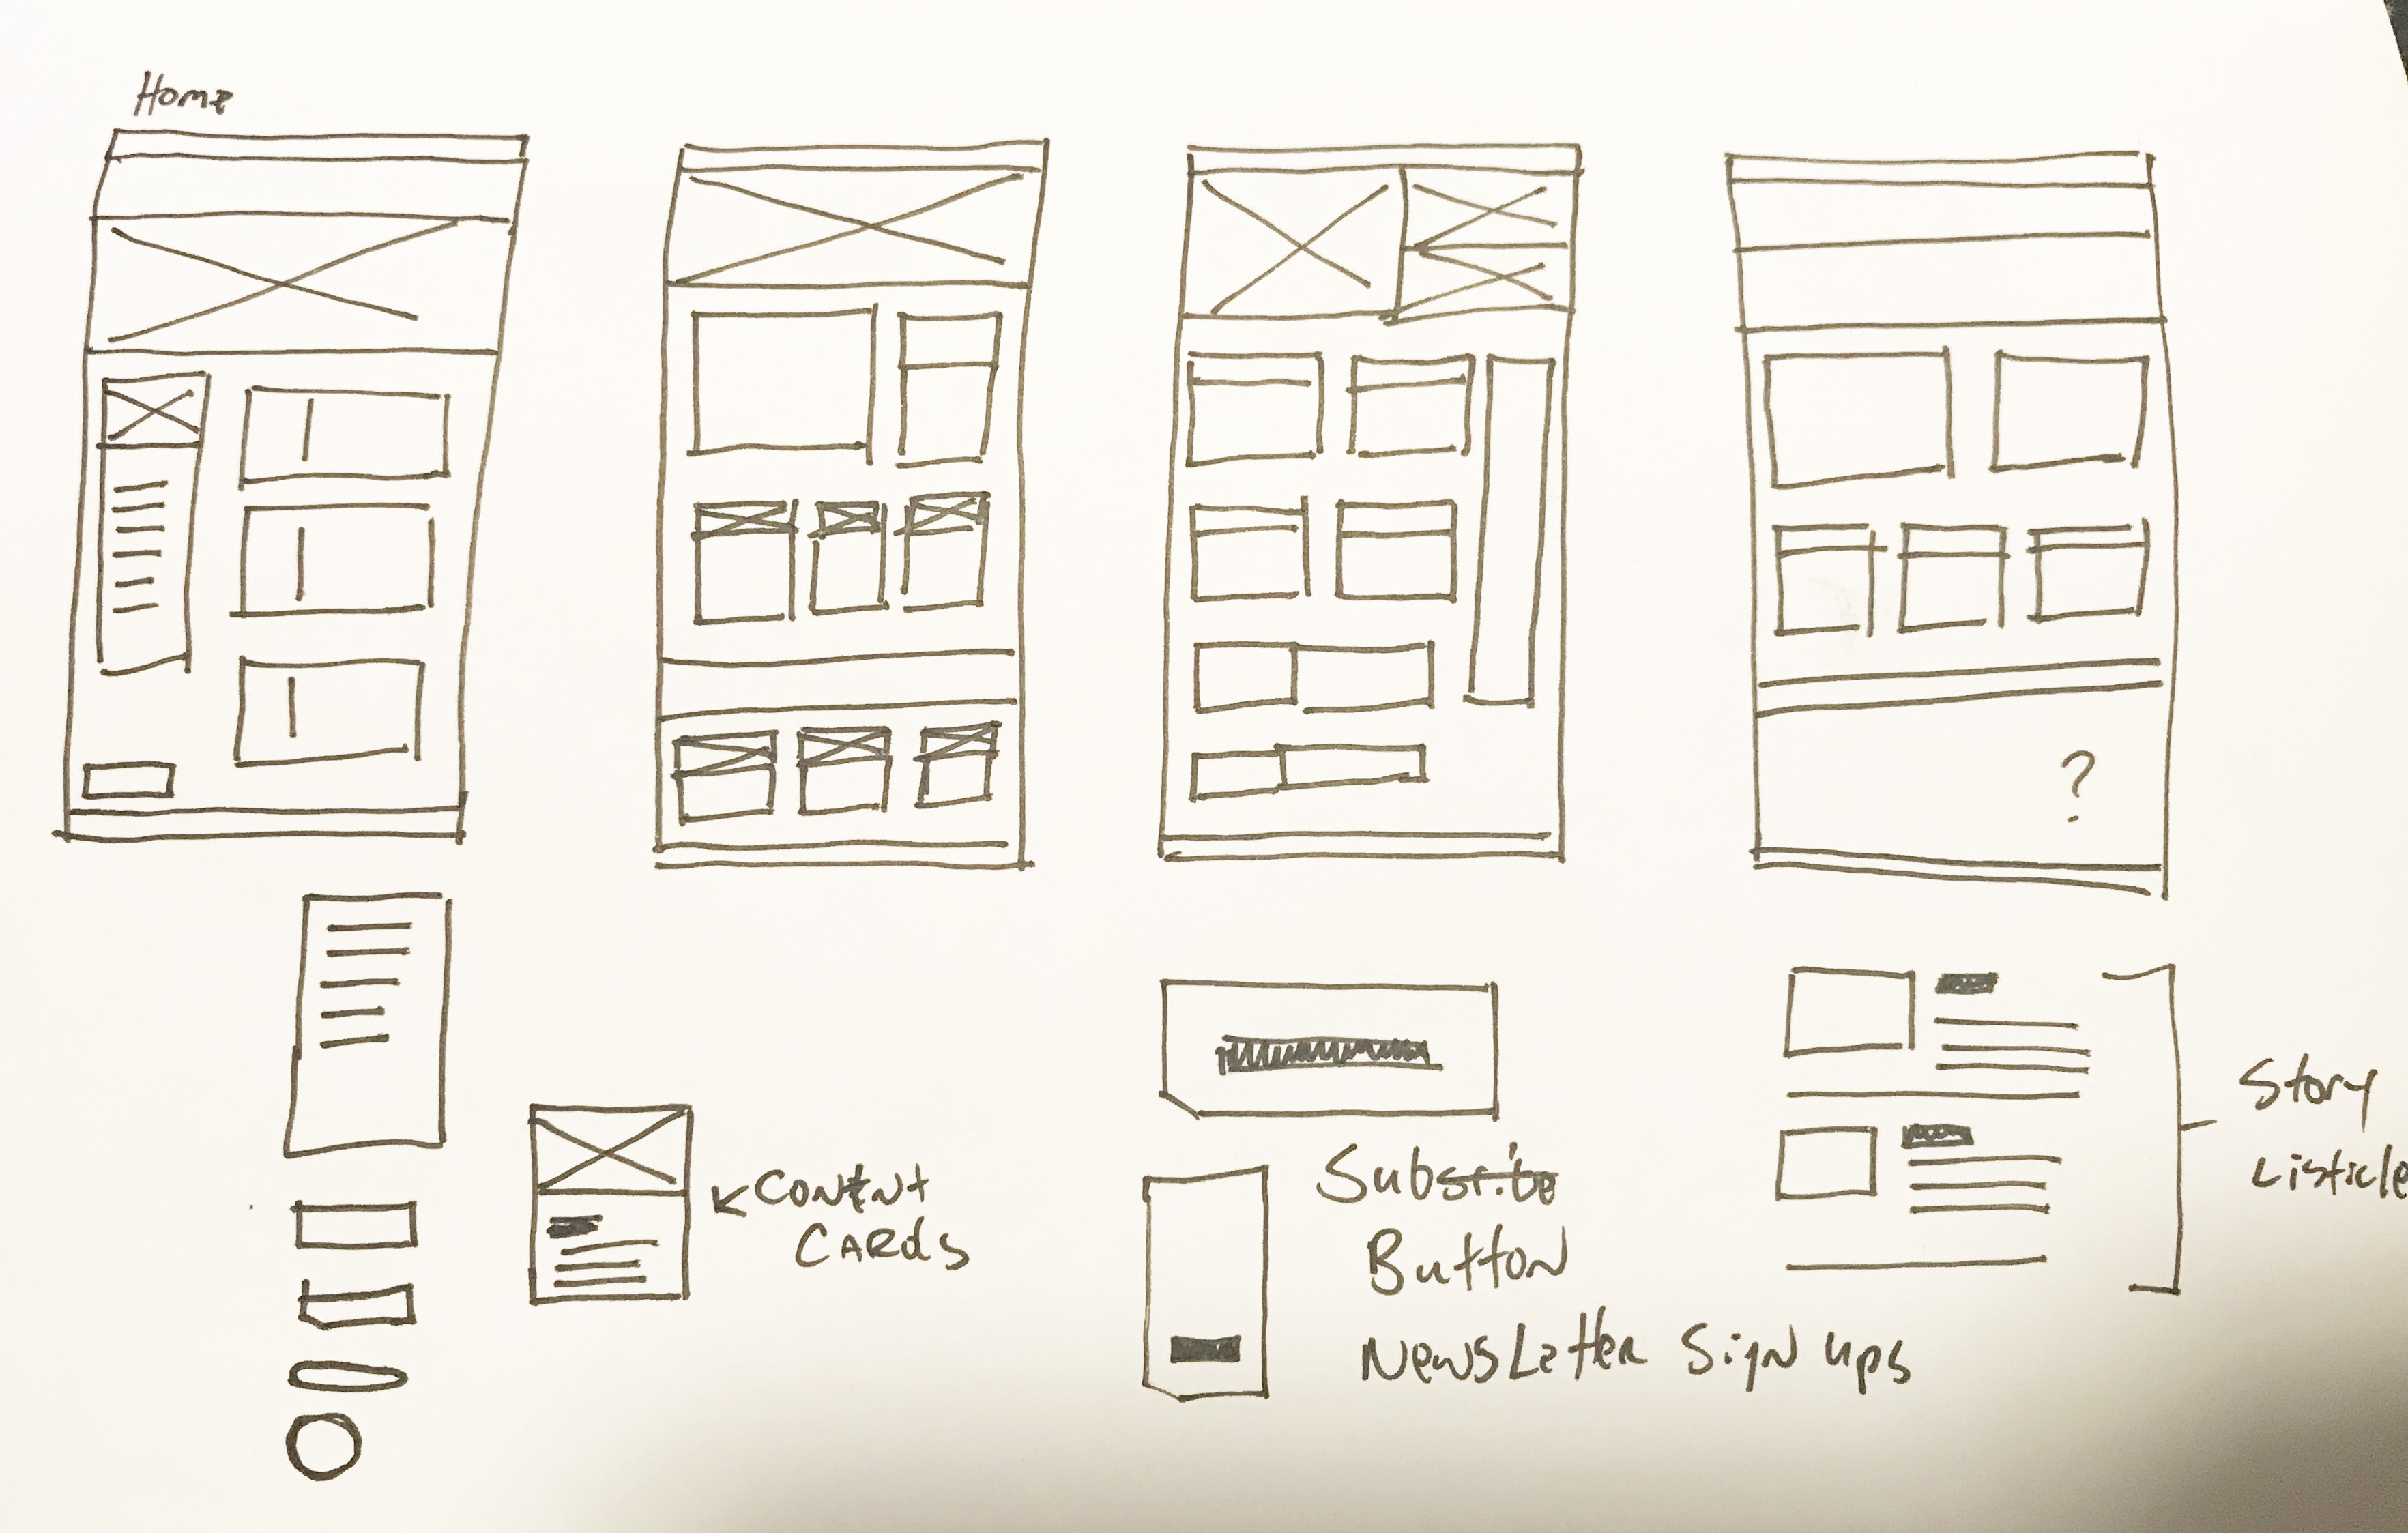 Home
?
Content
Cards
Subscribe
Button
Newsletter Sign ups
Story
Listicle